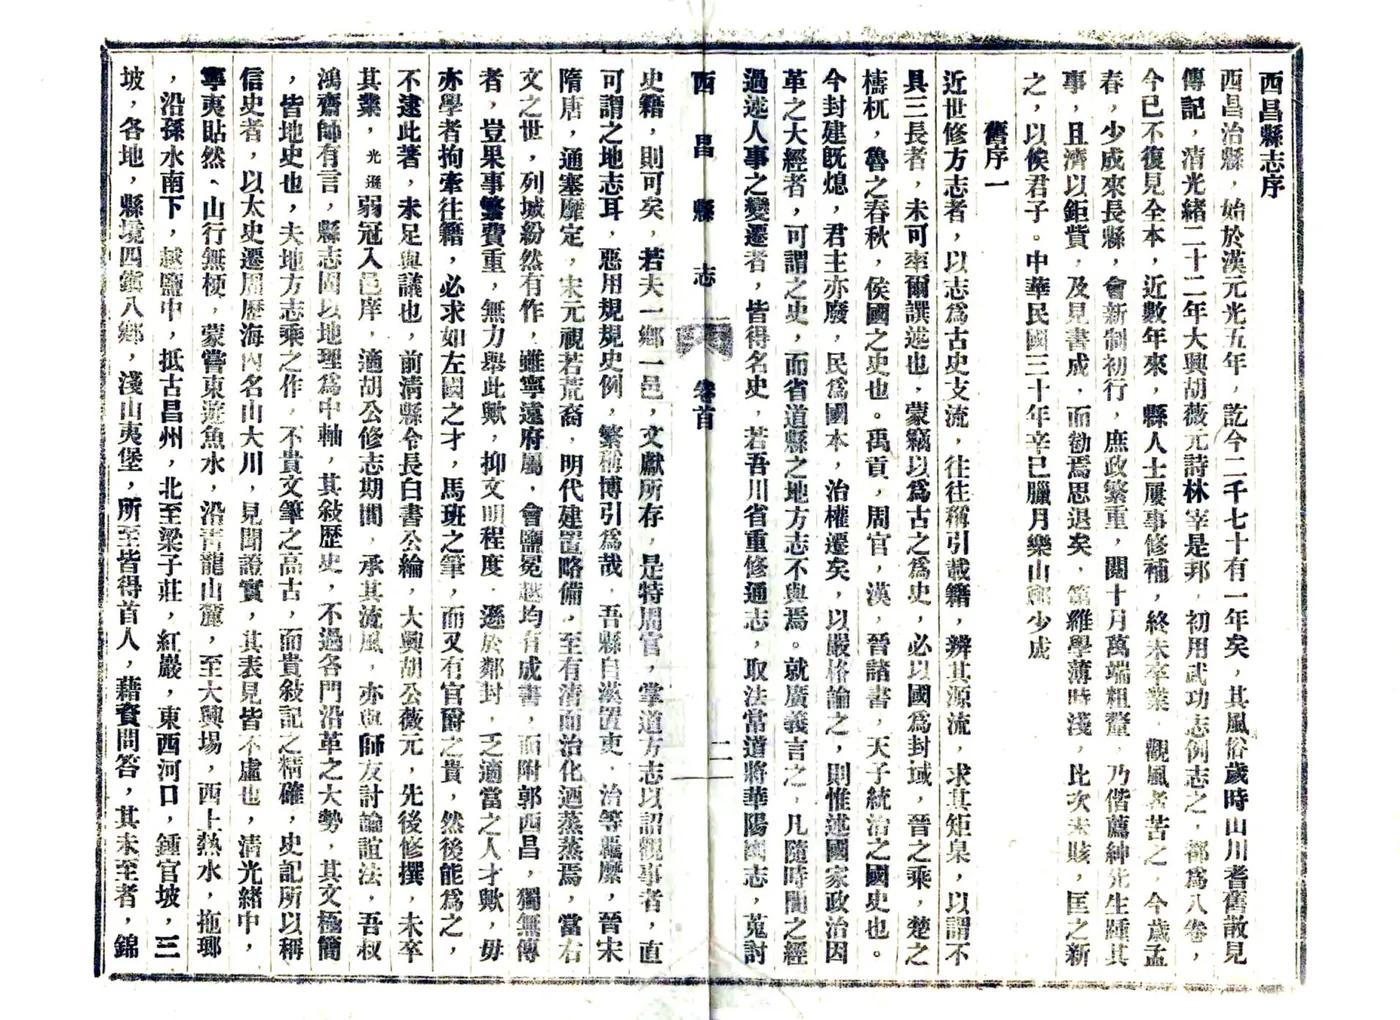 西昌縣志序
西昌治縣，始於漢元光五年，訖今二千七十有一年矣，其風俗歲時山川耆舊散見
傳記，清光緒二十二年大興胡薇元詩林宰是邦，初用武功志例志之，都為八卷，
今已不復見全本，近數年來，縣人士屢事修補，終未卒業，觀風者苦之，今歲孟
春，少成來長縣，會新制初行，庶政繁重，閱十月萬端粗釐，乃偕薦紳先生踵其
事，且濟以鉅貲，及見書成，而勸焉思退矣，第雜學薄時淺，比次未賅，匡之新
之，以俟君子。中華民國三十年辛巳臘月樂山鄭少成
舊序一
近世修方志者，以志為古史支流，往往稱引載籍，辨其源流，求其矩臬，以謂不
具三長者，未可率爾譔述也，蒙竊以為古之為史，必以國為封域，晉之乘，楚之
檮杌，魯之春秋，侯國之史也。禹貢，周官，漢，晉諸書，天子統治之國史也。
今封建既熄，君主亦廢，民為國本，治權遷矣，以嚴格論之，則惟述國家政治因
革之大經者，可謂之史，而省道縣之地方志不與焉。就廣義言之，凡隨時間之經
過述人事之變遷者，皆得名史，若吾川省重修通志，取法常道將華陽國志，蒐討
西昌縣志 卷首 二
史籍，則可矣，若夫一鄉一邑，文獻所存，是特周官，掌道方志以詔觀事者，直
可謂之地志耳，惡用規規史例，繁稱博引為哉，吾縣自漢置吏，治等羈縻，晉宋
隋唐，通塞靡定，宋元視若荒裔，明代建置略備，至有清而治化迺蒸蒸焉，當右
文之世，列城紛然有作，雖寧遠府屬，會鹽冕越均有成書，而附郭西昌，獨無傳
者，豈果事繁費重，無力舉此歟，抑文明程度，遜於鄰封，乏適當之人才歟，毋
亦學者拘牽往籍，必求如左國之才，馬班之筆，而又有官爵之貴，然後能為之，
不逮此著，未足與議也，前清縣令長白書公綸，大興胡公薇元，先後修撰，未卒
其業，光遜弱冠入邑庠，適胡公修志期間，承其流風，亦與師友討論誼法，吾叔
鴻齋師有言，縣志固以地理為中軸，其敍歷史，不過各門沿革之大勢，其文極簡
，皆地史也，夫地方志乘之作，不貴文筆之高古，而貴敍記之精確，史記所以稱
信史者，以太史遷周歷海內名山大川，見聞證實，其表見皆不虛也，清光緒中，
寧夷貼然、山行無梗，蒙嘗東遊魚水，沿青龍山麓，至大興場，西上熱水，拖瑯
，沿孫水南下，越鹽中，抵古昌州，北至梁子莊，紅巖，東西河口，鍾官坡，三
坡，各地，縣境四鎮八鄉，淺山夷堡，所至皆得首人，藉資問答，其未至者，錦